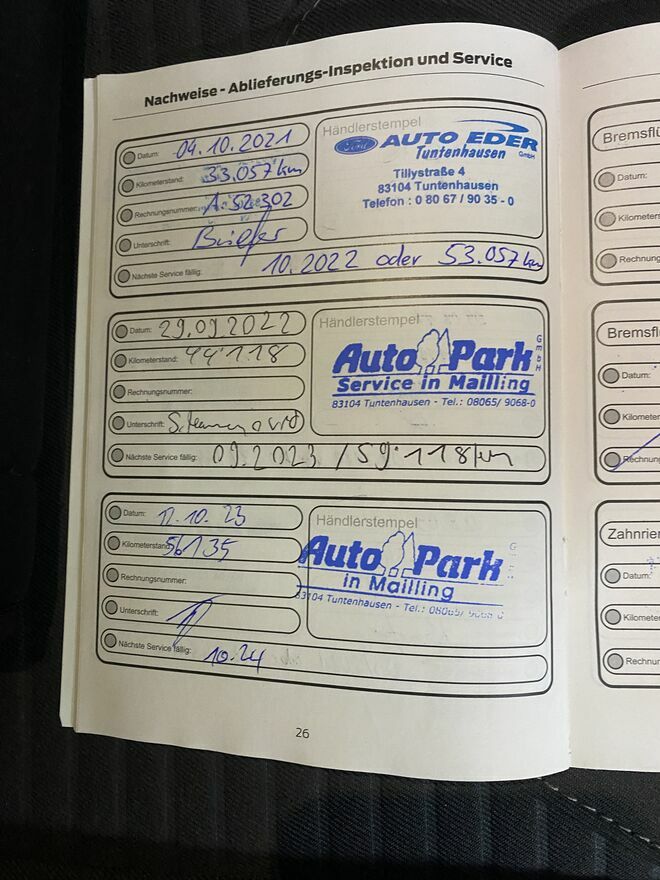 Nachweise - Ablieferungs-Inspektion und Service
Datum: 04.10.2021
Kilometerstand: 33.057 km
Rechnungsnummer: A. 52.302
Unterschrift:
Nächste Service fällig: 10.2022 oder 53.057 km
Händlerstempel
Ford AUTO EDER
Tuntenhausen GmbH
Tillystraße 4
83104 Tuntenhausen
Telefon : 0 80 67 / 90 35 - 0
Datum: 29.09.2022
Kilometerstand: 44.118
Rechnungsnummer:
Unterschrift:
Nächste Service fällig: 09.2023 / 59.118 km
Händlerstempel
Auto Park GmbH
Service in Mailling
83104 Tuntenhausen - Tel.: 08065/ 9068-0
Datum: 12.10.23
Kilometerstand: 56135
Rechnungsnummer:
Unterschrift:
Nächste Service fällig: 10.24
Händlerstempel
Auto Park
in Mailling
83104 Tuntenhausen - Tel.: 08065/ 9068-0
26
Bremsflü
Datum:
Kilometers
Rechnung
Bremsfl
Datum:
Kilometer
Rechnung
Zahnrie
Datum:
Kilometer
Rechnu